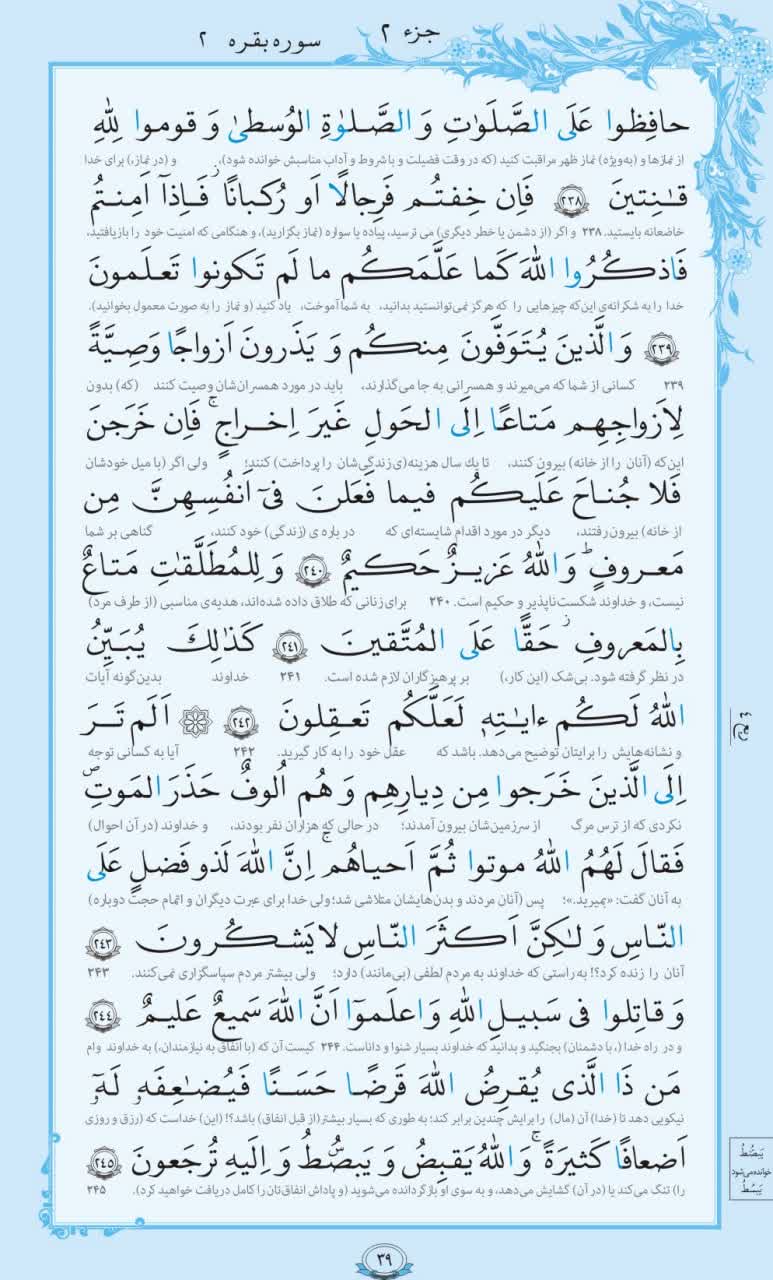 جزء ۲
سوره بقره ۲
حافِظوا عَلَى الصَّلَوٰتِ وَ الصَّلوٰةِ الوُسطىٰ وَ قوموا لِلّٰهِ
از نمازها و (به‌ویژه) نماز ظهر مراقبت کنید (که در وقت فضیلت و با شروط و آداب مناسبش خوانده شود)، و (در نماز،) برای خدا
قٰنِتينَ ﴿۲۳۸﴾ فَاِن خِفتُم فَرِجالًا اَو رُكبانًا ۖ فَاِذآ اَمِنتُم
خاضعانه بایستید. ۲۳۸ و اگر (از دشمن یا خطر دیگری) می ترسید، پیاده یا سواره (نماز بگزارید)، و هنگامی که امنیت خود را بازیافتید،
فَاذكُرُوا اللّٰهَ كَما عَلَّمَكُم ما لَم تَكونوا تَعلَمونَ
خدا را به شکرانه‌ی این‌که چیزهایی را که هرگز نمی‌توانستید بدانید، به شما آموخت، یاد کنید (و نماز را به صورت معمول بخوانید).
﴿۲۳۹﴾ وَ الَّذينَ يُتَوَفَّونَ مِنكُم وَ يَذَرونَ اَزواجًا وَصِيَّةً
۲۳۹ کسانی از شما که می‌میرند و همسرانی به جا می‌گذارند، باید در مورد همسران‌شان وصیت کنند (که) بدون
لِاَزواجِهِم مَتاعًا اِلَى الحَولِ غَيرَ اِخراجٍ ۚ فَاِن خَرَجنَ
این‌که (آنان را از خانه) بیرون کنند، تا یك سال هزینه(ی زندگی‌شان را پرداخت) کنند؛ ولی اگر (با میل خودشان
فَلا جُناحَ عَلَيكُم فيما فَعَلنَ فىٓ اَنفُسِهِنَّ مِن
از خانه) بیرون رفتند، دیگر در مورد اقدام شایسته‌ای که در باره ی (زندگی) خود کنند، گناهی بر شما
مَعروفٍ ؕ وَ اللّٰهُ عَزيزٌ حَكيمٌ ﴿۲۴۰﴾ وَ لِلمُطَلَّقٰتِ مَتاعٌ
نیست، و خداوند شکست‌ناپذیر و حکیم است. ۲۴۰ برای زنانی که طلاق داده شده‌اند، هدیه‌ی مناسبی (از طرف مرد)
بِالمَعروفِ ۖ حَقًّا عَلَى المُتَّقينَ ﴿۲۴۱﴾ كَذٰلِكَ يُبَيِّنُ
در نظر گرفته شود. بی‌شک (این کار،) بر پرهیزگاران لازم شده است. ۲۴۱ خداوند بدین‌گونه آیات
اللّٰهُ لَكُم ءايٰتِهٖ لَعَلَّكُم تَعقِلونَ ﴿۲۴۲﴾ اَلَم تَرَ
و نشانه‌هایش را برایتان توضیح می‌دهد. باشد که عقل خود را به کار گیرید. ۲۴۲ آیا به کسانی توجه
اِلَى الَّذينَ خَرَجوا مِن دِيارِهِم وَ هُم اُلوفٌ حَذَرَ المَوتِ
نکردی که از ترس مرگ از سرزمین‌شان بیرون آمدند؛ در حالی که هزاران نفر بودند، و خداوند (در آن احوال)
فَقالَ لَهُمُ اللّٰهُ موتوا ثُمَّ اَحياهُم ۚ اِنَّ اللّٰهَ لَذو فَضلٍ عَلَى
به آنان گفت: «بمیرید.»؛ پس (آنان مردند و بدن‌هایشان متلاشی شد؛ ولی خدا برای عبرت دیگران و اتمام حجت دوباره)
النّاسِ وَ لٰكِنَّ اَكثَرَ النّاسِ لا يَشكُرونَ ﴿۲۴۳﴾
آنان را زنده کرد؟! به‌راستی که خداوند به مردم لطفی (بی‌مانند) دارد؛ ولی بیشتر مردم سپاسگزاری نمی‌کنند. ۲۴۳
وَ قاتِلوا فى سَبيلِ اللّٰهِ وَ اعلَموٓا اَنَّ اللّٰهَ سَميعٌ عَليمٌ ﴿۲۴۴﴾
و در راه خدا (، با دشمنان) بجنگید و بدانید که خداوند بسیار شنوا و داناست. ۲۴۴ کیست آن که (با انفاق به نیازمندان،) به خداوند وام
مَن ذَا الَّذى يُقرِضُ اللّٰهَ قَرضًا حَسَنًا فَيُضٰعِفَهٗ لَهٗٓ
نیکویی دهد تا (خدا) آن (مال) را برایش چندین برابر کند؛ به طوری که بسیار بیشتر (از قبل انفاق) باشد؟! (این) خداست که (رزق و روزی
اَضعافًا كَثيرَةً ۚ وَ اللّٰهُ يَقبِضُ وَ يَبصُۜطُ وَ اِلَيهِ تُرجَعونَ ﴿۲۴۵﴾
را) تنگ می‌کند یا (در آن) گشایش می‌دهد، و به سوی او بازگردانده می‌شوید (و پاداش انفاق‌تان را کامل دریافت خواهید کرد). ۲۴۵
يَبصُطُ
خوانده می‌شود
يَبسُطُ
۳۹